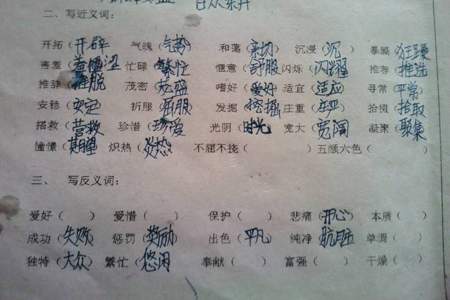 日久东升
二、写近义词：
开拓（开辟） 气魄（气势） 和蔼（亲切） 沉浸（沉） 暴躁（狂躁）
害羞（羞涩） 忙碌（繁忙） 惬意（舒服） 闪烁（闪耀） 推荐（推选）
推辞（推脱） 茂密（茂盛） 嗜好（爱好） 适宜（适应） 寻常（平常）
安稳（安定） 折服（信服） 发掘（挖掘） 庄重（庄严） 拾捡（拾取）
搭救（营救） 珍惜（珍爱） 光阴（时光） 宽大（宽阔） 凝聚（聚集）
憧憬（期望） 炽热（炎热） 不屈不挠（ ） 五颜六色（ ）
三、 写反义词：
爱好（ ） 爱惜（ ） 保护（ ） 悲痛（开心） 本质（ ）
成功（失败） 惩罚（奖励） 出色（平凡） 纯净（肮脏） 单调（ ）
独特（大众） 繁忙（悠闲） 奉献（ ） 富强（ ） 干燥（ ）